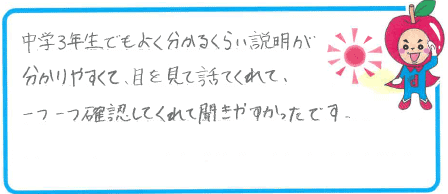 中学3年生でもよく分かるくらい説明が
分かりやすくて、目を見て話てくれて、
一つ一つ確認してくれて聞きやすかったです。